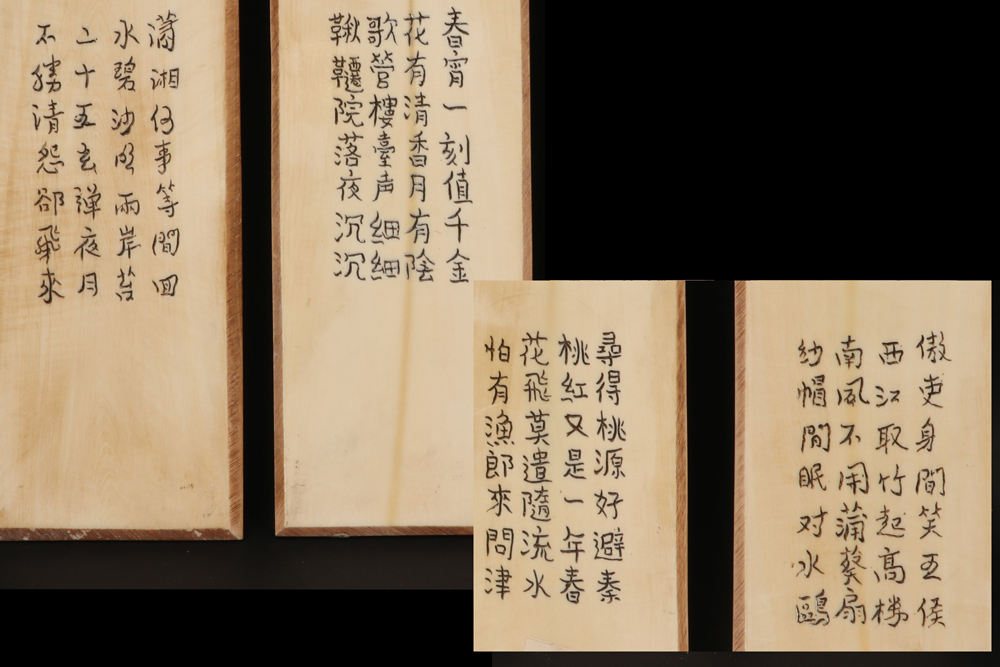 春宵一刻值千金
花有清香月有陰
歌營樓臺声細細
鞦韆院落夜沉沉
瀟湘何事等間回
水碧沙明兩岸苔
二十五玄弹夜月
不勝清怨卻飛來
傲吏身間笑五侯
西江取竹起高楼
南風不用蒲葵扇
纱帽間眠对水鷗
尋得桃源好避秦
桃紅又是一年春
花飛莫遣隨流水
怕有漁郎來問津